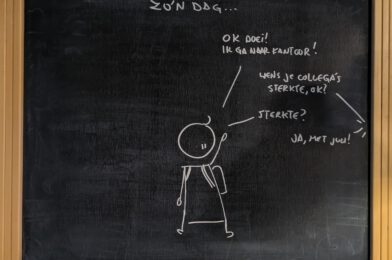 ZO'N DAG...
OK DOEI!
IK GA NAAR KANTOOR!
WENS JE COLLEGA'S
STERKTE, OK?
STERKTE?
JA, MET JOU!